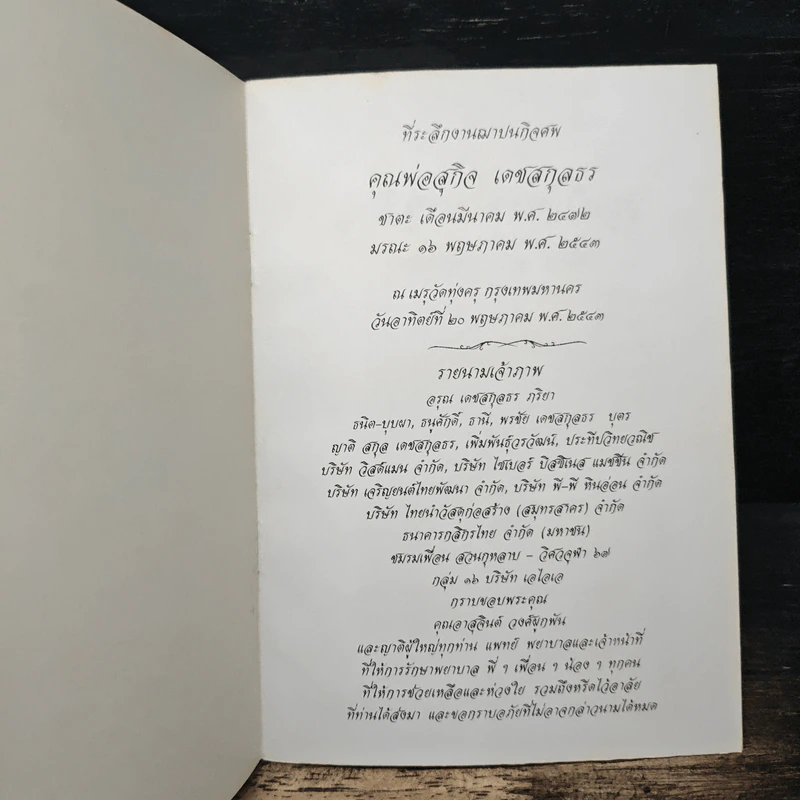 ที่ระลึกงานฌาปนกิจศพ
คุณพ่อสุกิจ เดชสกุลธร
ชาตะ เดือนมีนาคม พ.ศ. ๒๔๗๒
มรณะ ๑๖ พฤษภาคม พ.ศ. ๒๕๔๓
ณ เมรุวัดทุ่งครุ กรุงเทพมหานคร
วันอาทิตย์ที่ ๒๐ พฤษภาคม พ.ศ. ๒๕๔๓
รายนามเจ้าภาพ
อรุณ เดชสกุลธร ภริยา
ธนิต-บุบผา, ธนูศักดิ์, ธานี, พรชัย เดชสกุลธร บุตร
ญาติ สกุล เดชสกุลธร, เพิ่มพันธุ์วรวัฒน์, ประทีปวิทยวณิช
บริษัท วิสต์แมน จำกัด, บริษัท ไซเบอร์ บิสซิเนส แมชชีน จำกัด
บริษัท เจริญยนต์ไทยพัฒนา จำกัด, บริษัท พี-พี หินอ่อน จำกัด
บริษัท ไทยนำวัสดุก่อสร้าง (สมุทรสาคร) จำกัด
ธนาคารกสิกรไทย จำกัด (มหาชน)
ชมรมเพื่อน สวนกุหลาบ - วิศวจุฬา ๖๗
กลุ่ม ๑๖ บริษัท เอไอเอ
กราบขอบพระคุณ
คุณอาสุจินต์ วงศ์ผูกพัน
และญาติผู้ใหญ่ทุกท่าน แพทย์ พยาบาลและเจ้าหน้าที่
ที่ให้การรักษาพยาบาล พี่ ๆ เพื่อน ๆ น้อง ๆ ทุกคน
ที่ให้การช่วยเหลือและห่วงใย รวมถึงหรีดไว้อาลัย
ที่ท่านได้ส่งมา และขอกราบอภัยที่ไม่อาจกล่าวนามได้หมด